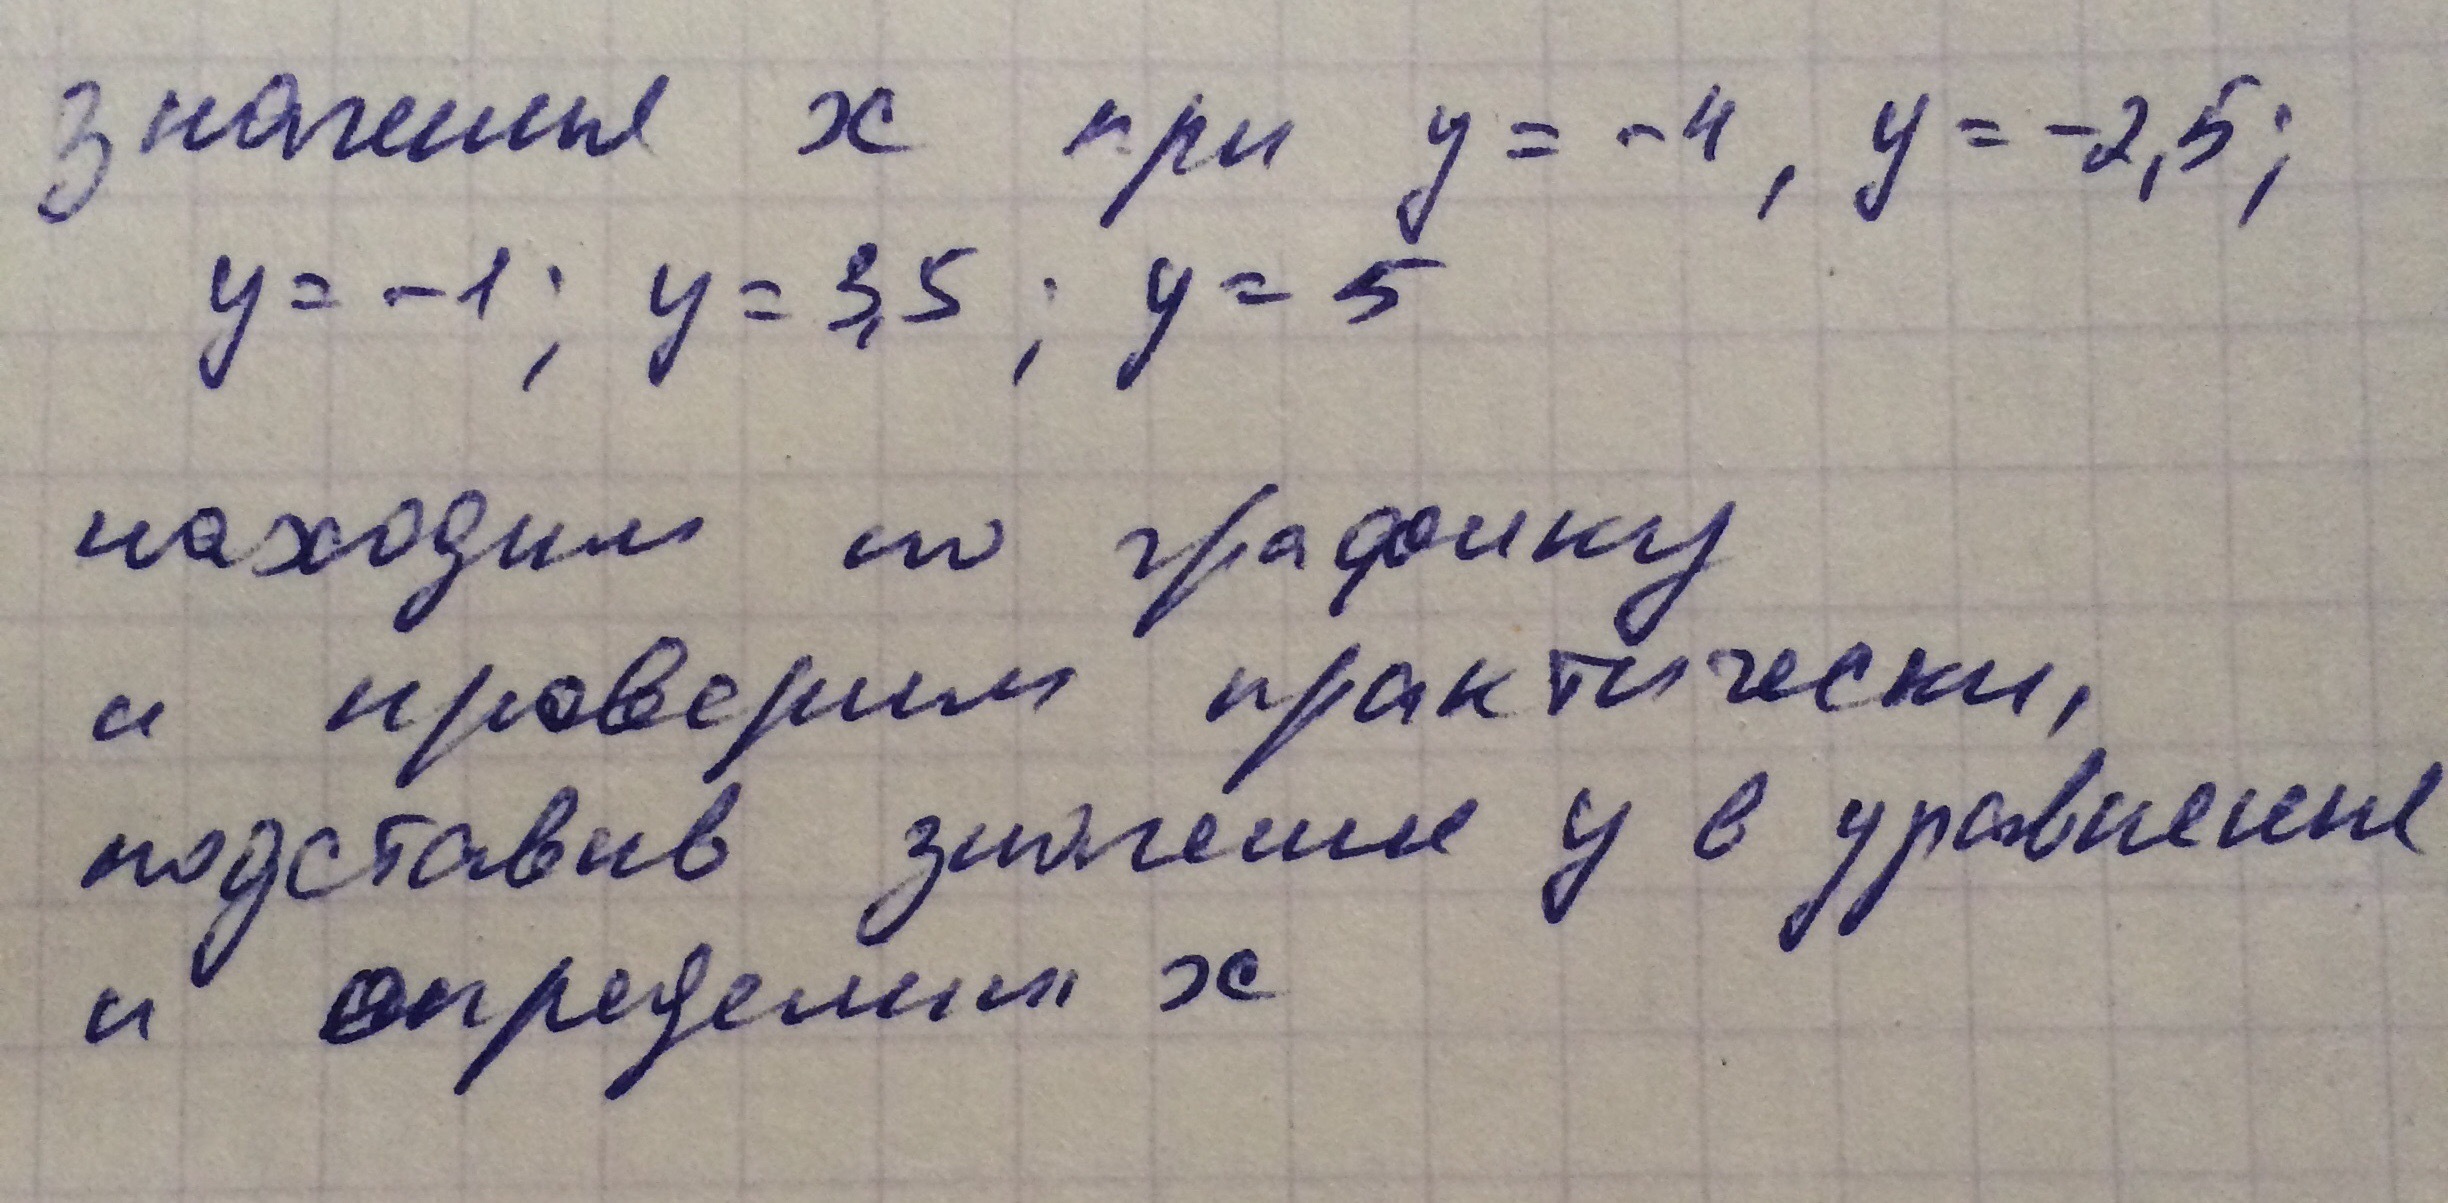 значения x при y = -4, y = -2,5;
y = -1; y = 3,5; y = 5
находим по графику
и проверим практически,
подставив значение y в уравнение
и определим x